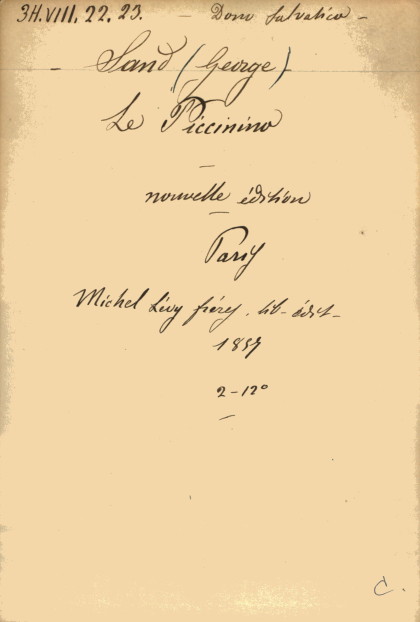 34.VIII.22.23. — Dono Salvatico —
— Sand (George)
Le Piccinino
—
nouvelle édition
—
Paris
Michel Lévy frères. lib- édit-
1857
2-12º
—
C.